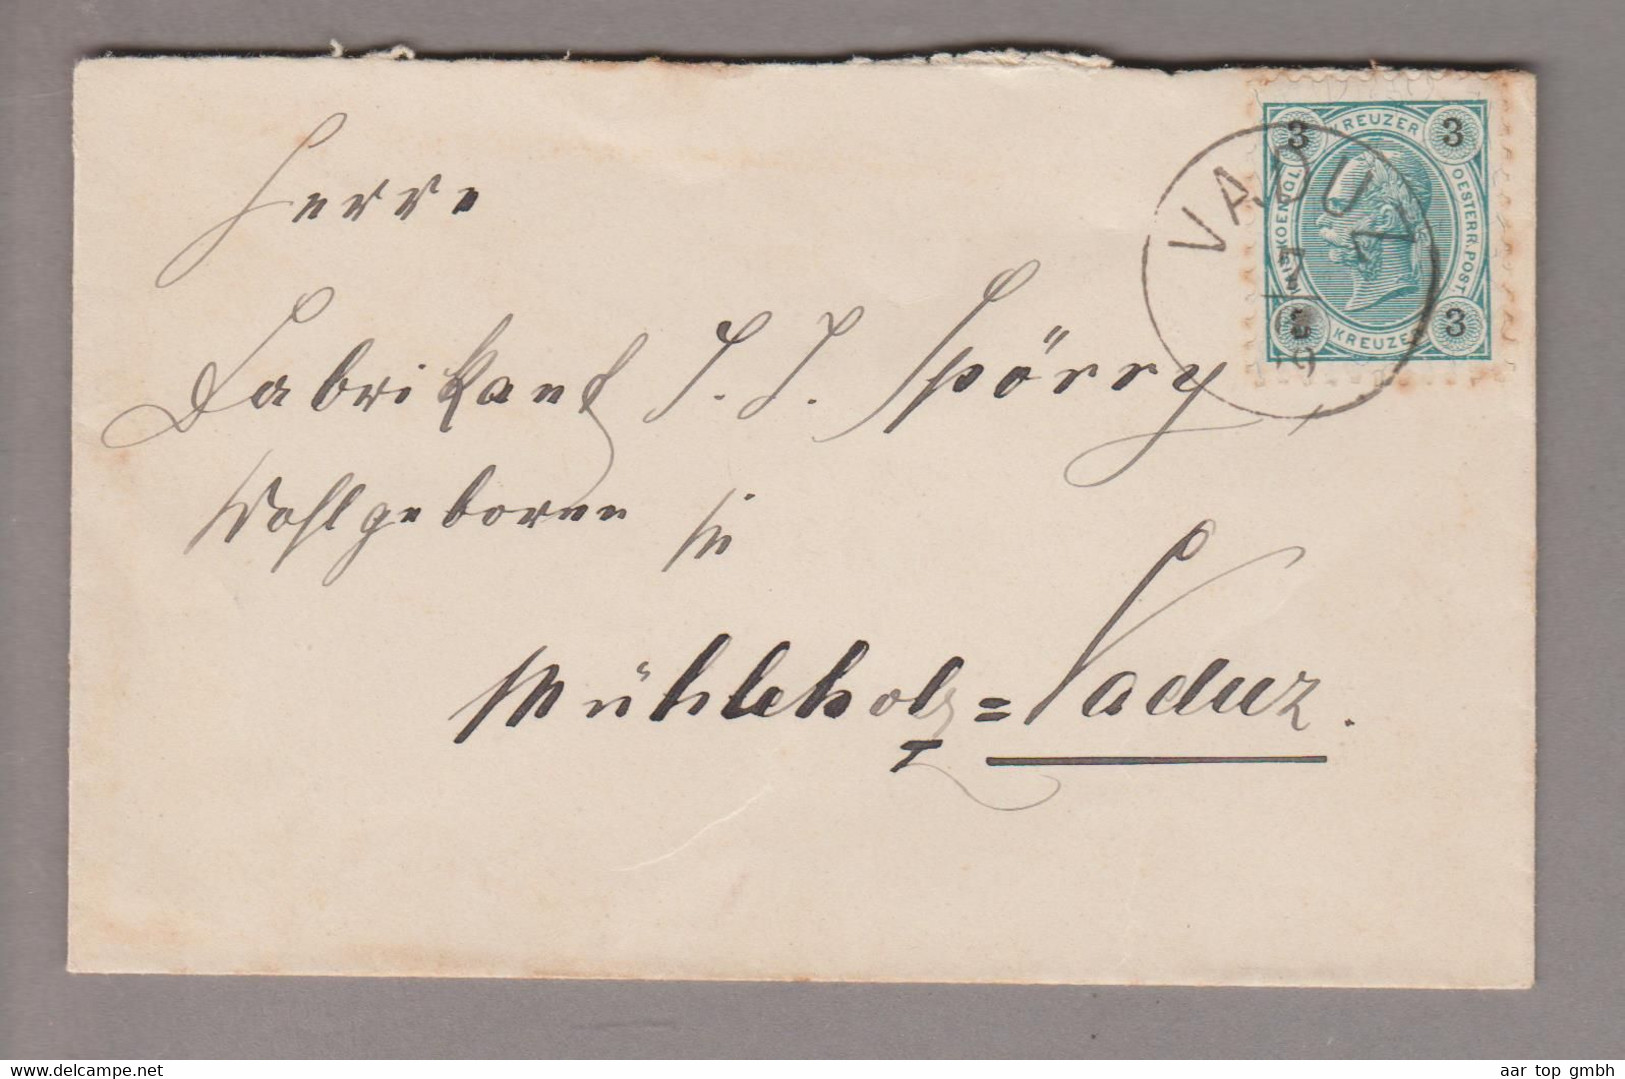 Herrn
Fabrikant J. J. Spörry
Wohlgeboren in
Mühleholz = Vaduz.
VADUZ
7
3 KREUZER 3
OESTERR. POST.
3 KREUZER 3
delcampe.net
aar top gmbh